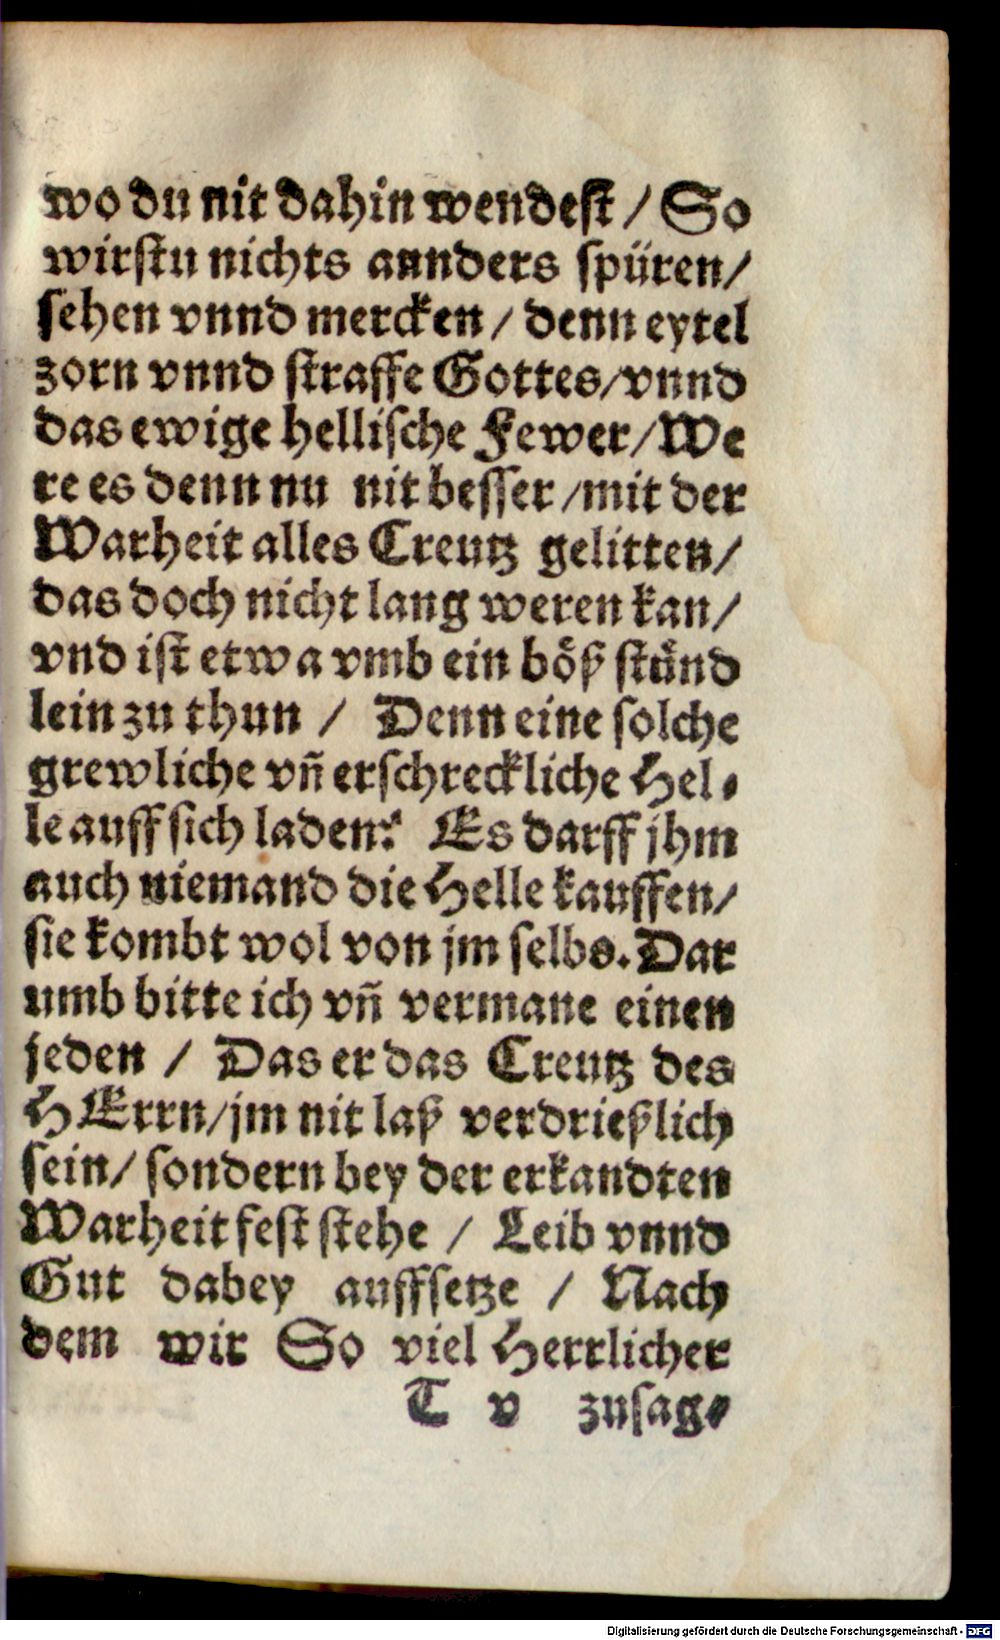 wo du nit dahin wendest / So
wirstu nichts annders spüren /
sehen vnnd mercken / denn eytel
zorn vnnd straffe Gottes / vnnd
das ewige hellische Fewer / We
re es denn nu nit besser / mit der
Warheit alles Creutz gelitten /
das doch nicht lang weren kan /
vnd ist etwa vmb ein böß stünd
lein zu thun / Denn eine solche
grewliche vñ erschreckliche Hel-
le auff sich laden? Es darff jhm
auch niemand die Helle kauffen /
sie kombt wol von jm selbs. Dar
umb bitte ich vñ vermane einen
jeden / Das er das Creutz des
HErrn / jm nit laß verdrießlich
sein / sondern bey der erkandten
Warheit fest stehe / Leib vnnd
Gut dabey auffsetze / Nach
dem wir So viel Herrlicher
T v zusag-
Digitalisierung gefördert durch die Deutsche Forschungsgemeinschaft - DFG